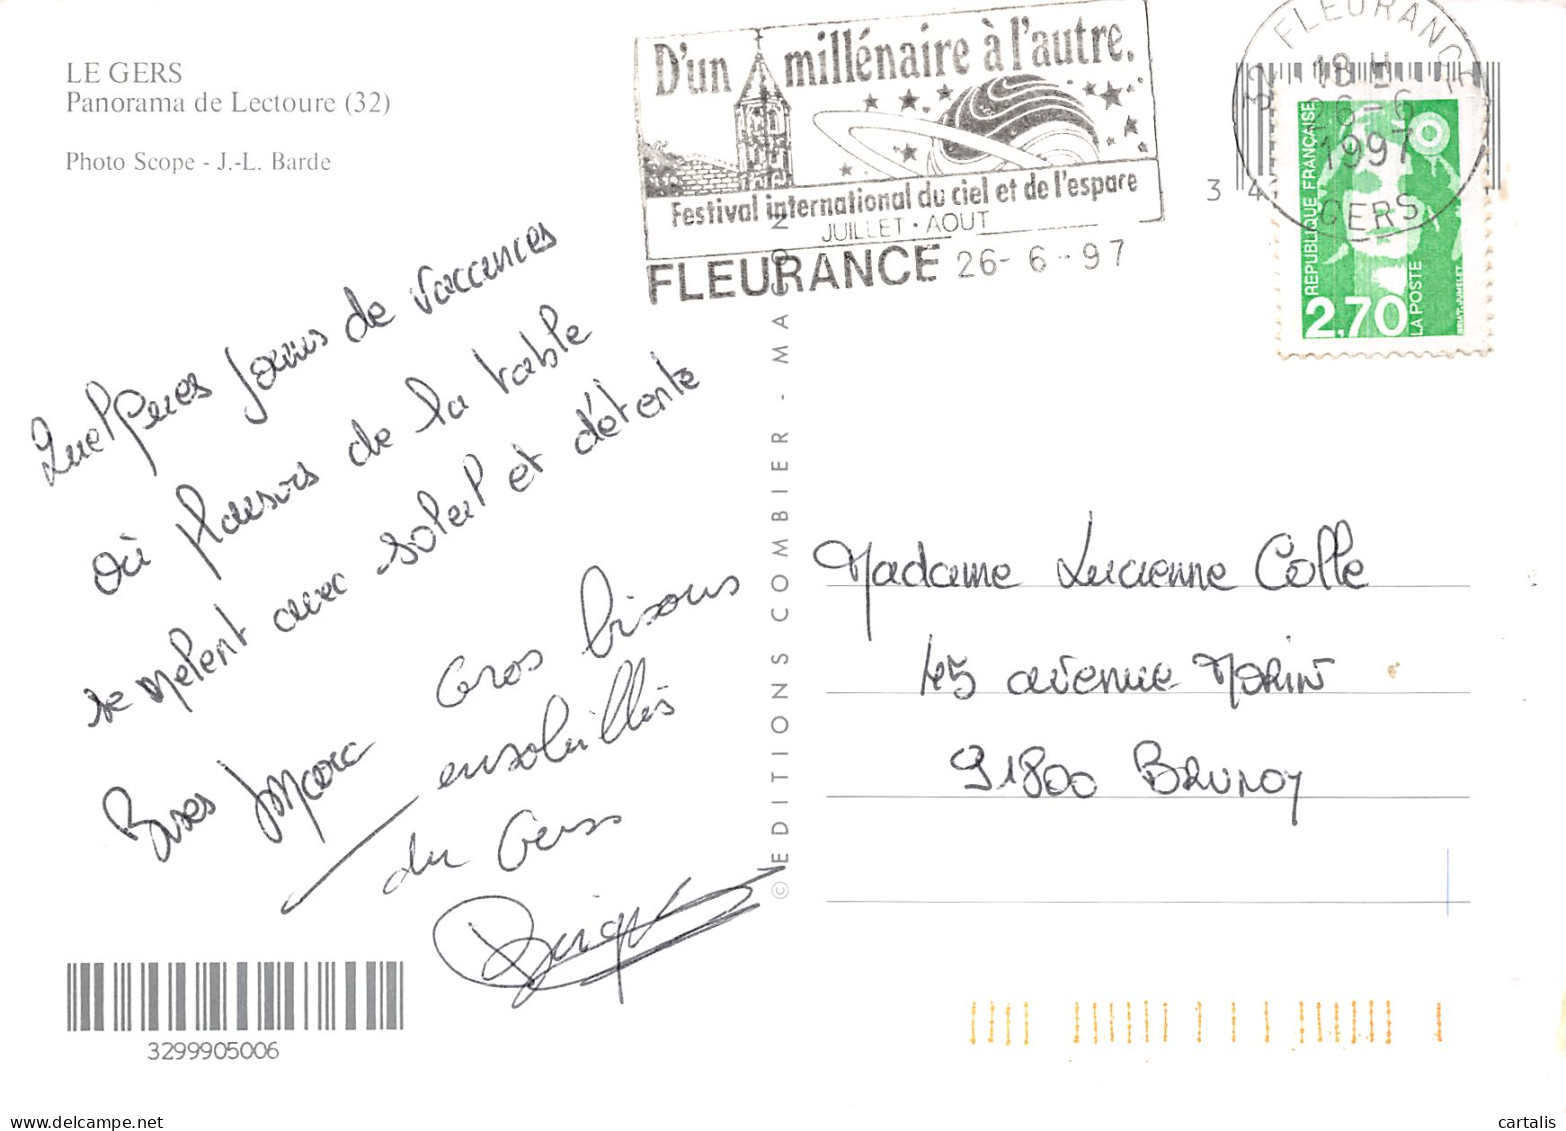 LE GERS
Panorama de Lectoure (32)
Photo Scope - J.-L. Barde
D'un millénaire à l'autre.
Festival international du ciel et de l'espace
JUILLET · AOUT
FLEURANCE 26-6-97
32 FLEURANCE
18 H
26-6
1997
GERS
REPUBLIQUE FRANÇAISE
2,70
LA POSTE
BRIAT-JUMELET
3 4
Quelques jours de vaccances
où plaisirs de la table
se mêlent avec soleil et détente
Gros bisous
ensoleillés
du Gers
Bises
© EDITIONS COMBIER - MACON
Madame Lucienne Colle
45 avenue Morin
91800 BRUNOY
3299905006
www.delcampe.net
cartalis